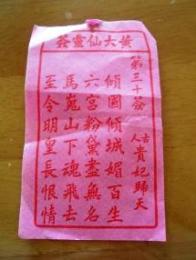 黃大仙靈簽
第三十簽
古人 貴妃歸天
傾國傾城媚百生
六宮粉黛盡無名
馬嵬山下魂飛去
至今明皇長恨情